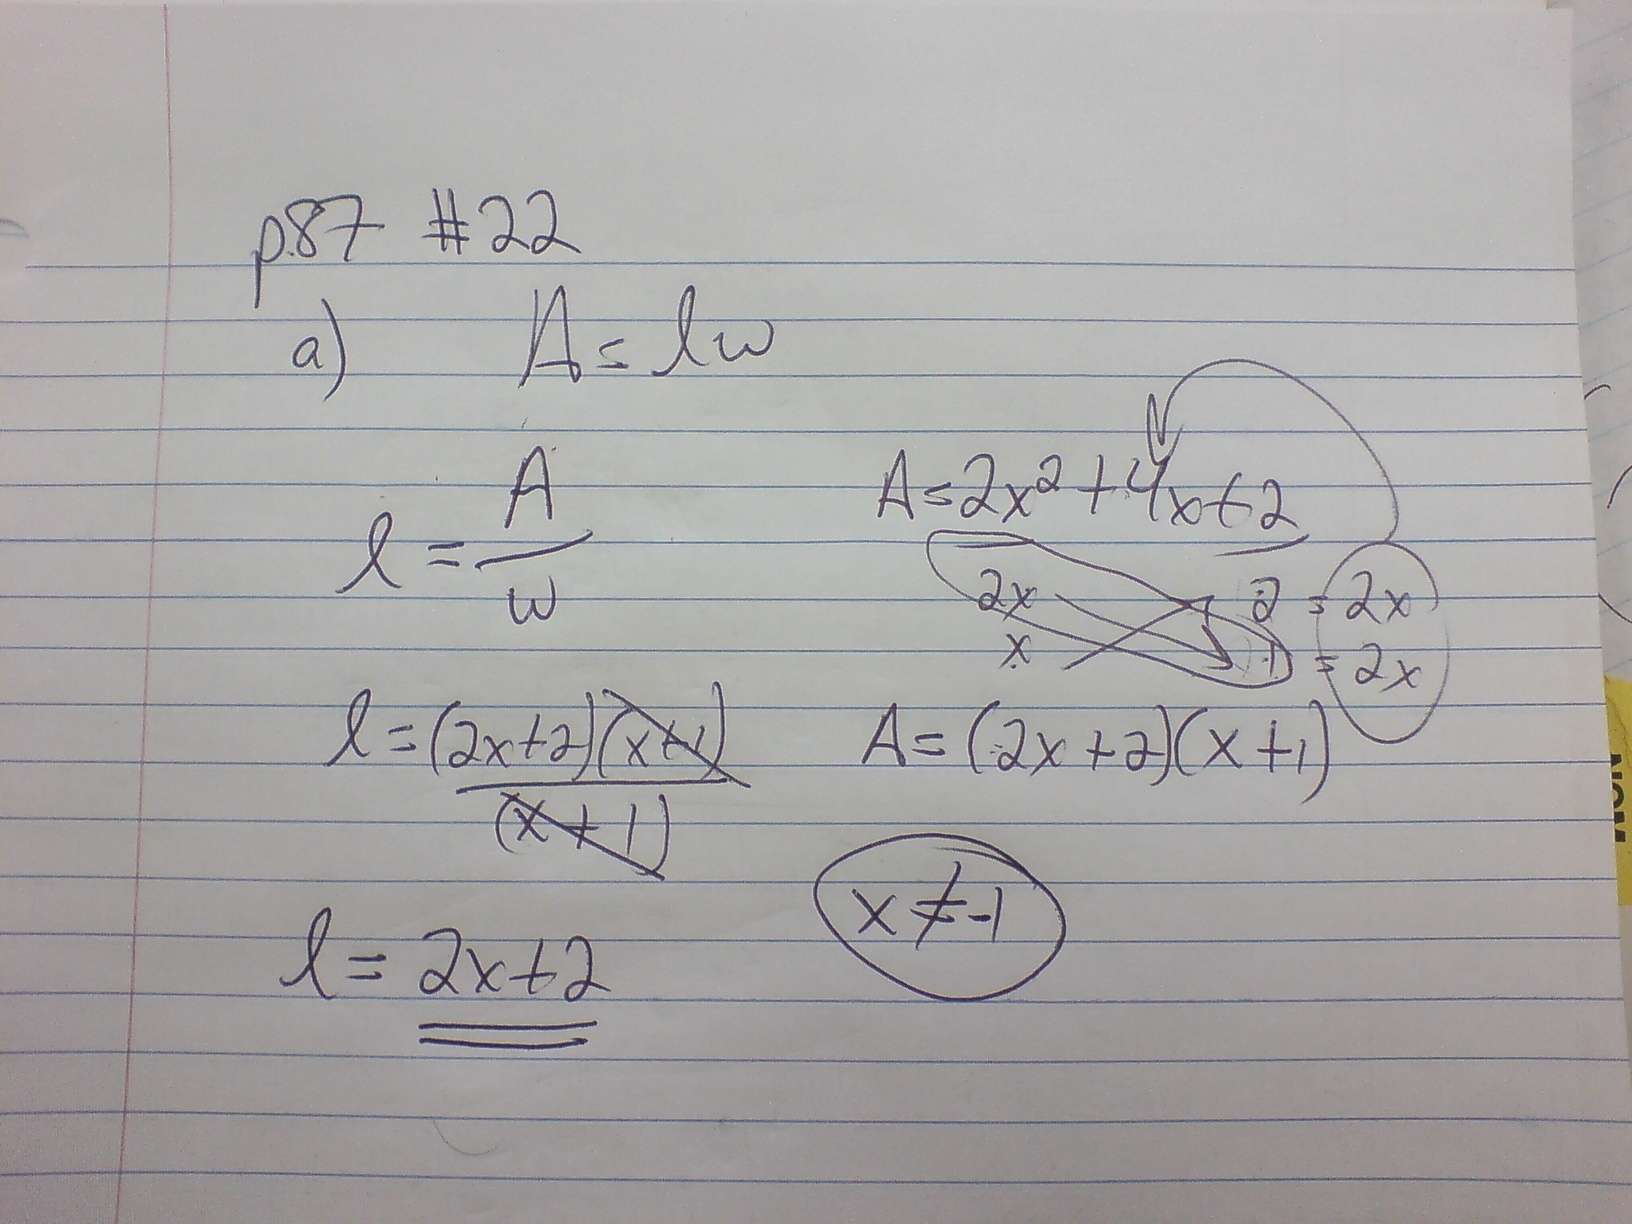 p.87 #22
a) A = lw
l = A/w
A = 2x² + 4x + 2
2x 2 = 2x
x 1 = 2x
l = (2x+2)(x+1)/(x+1)
A = (2x+2)(x+1)
x ≠ -1
l = 2x+2
NOW